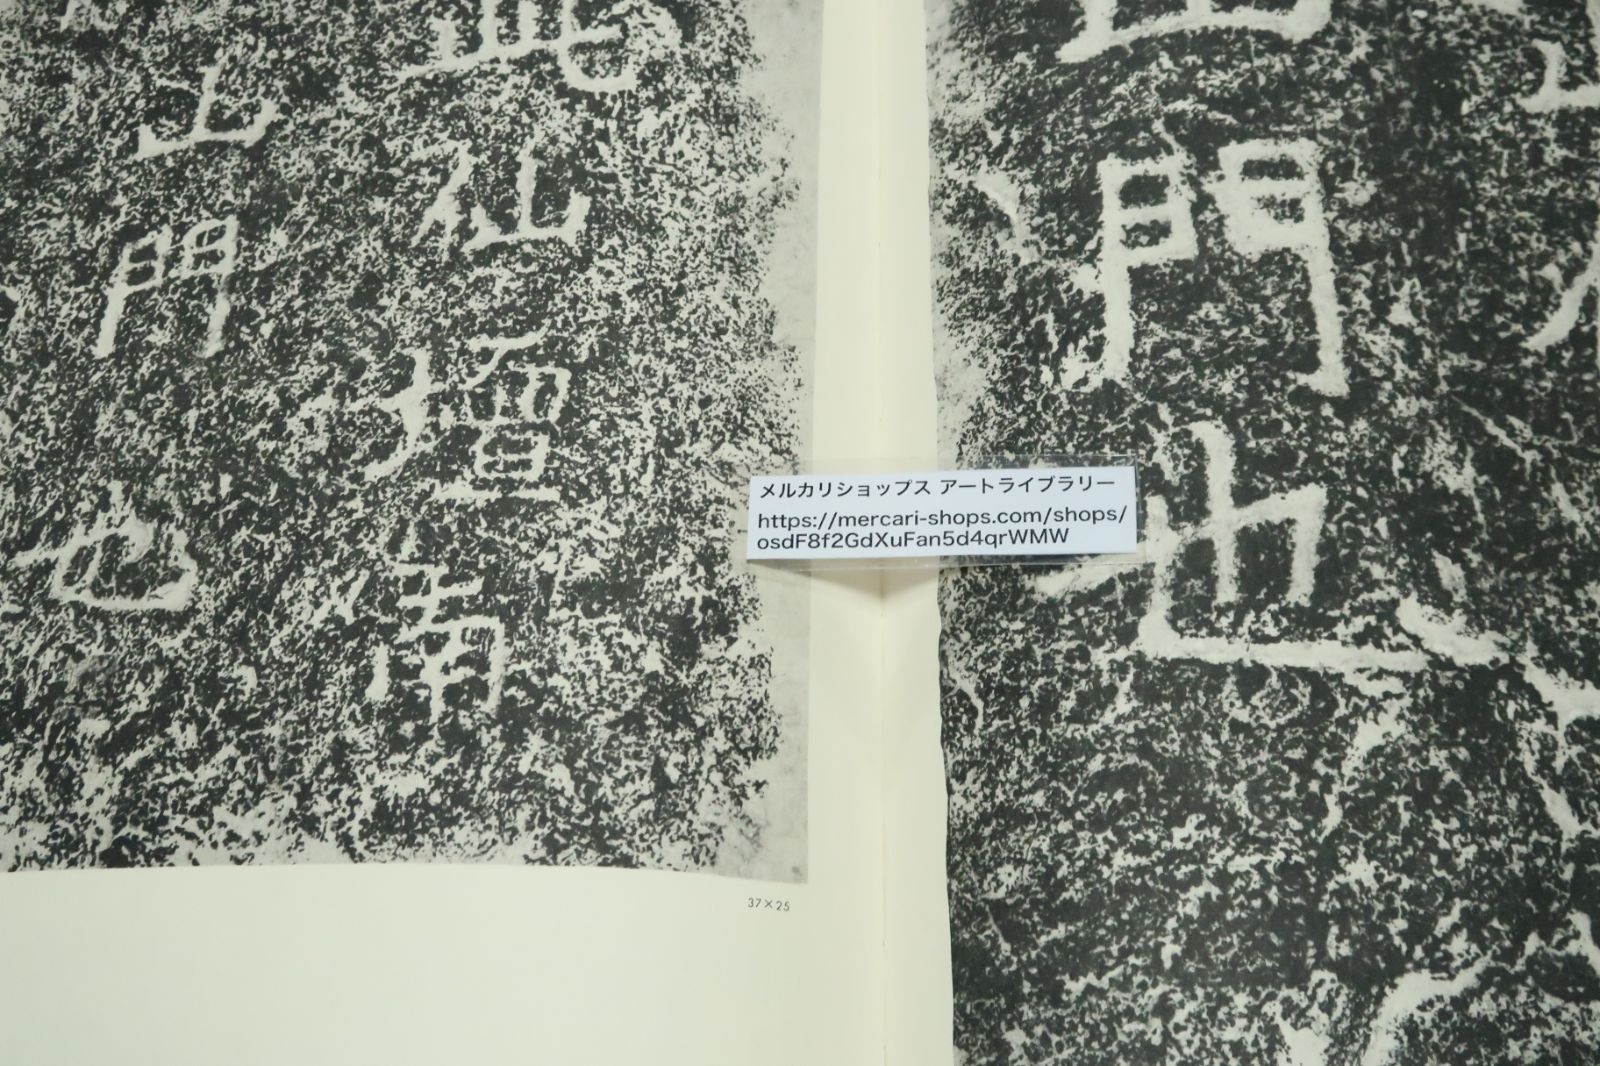 此仙壇南
山門也
37×25
メルカリショップス アートライブラリー
https://mercari-shops.com/shops/
osdF8f2GdXuFan5d4qrWMW
門也